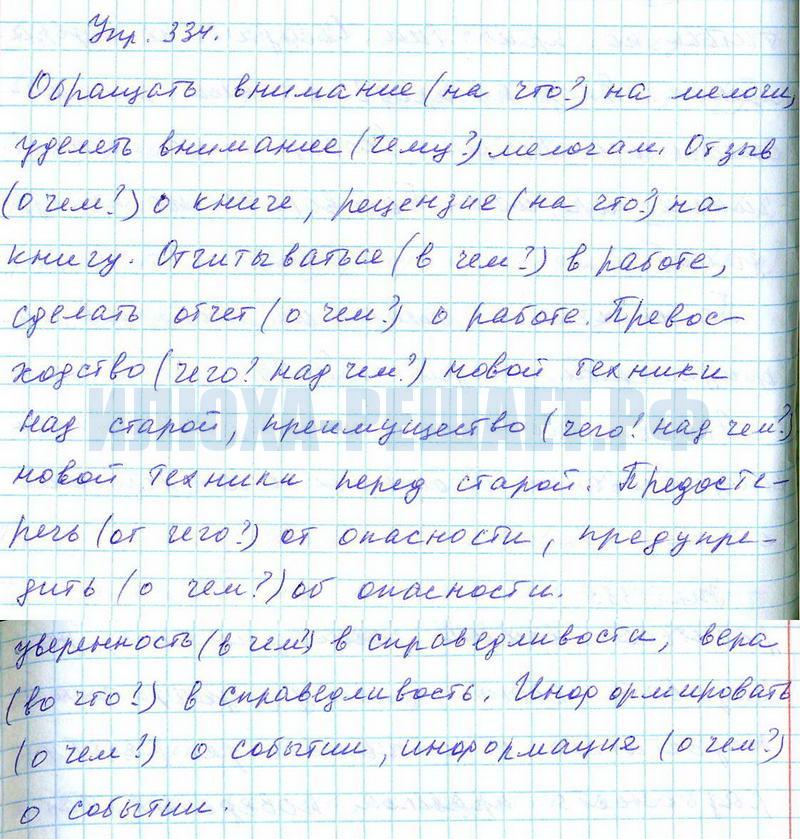 Упр. 334.
Обращать внимание (на что?) на мелочи,
уделять внимание (чему?) мелочам. Отзыв
(о чем?) о книге, рецензия (на что?) на
книгу. Отчитываться (в чем?) в работе,
сделать отчет (о чем?) о работе. Превос-
ходство (чего? над чем?) новой техники
ИЛЮХА РЕШАЕТ.РФ
над старой, преимущество (чего? над чем?)
новой техники перед старой. Предосте-
речь (от чего?) от опасности, предупре-
дить (о чем?) об опасности.
уверенность (в чем?) в справедливости, вера
(во что?) в справедливость. Информировать
(о чем?) о событии, информация (о чем?)
о событии.